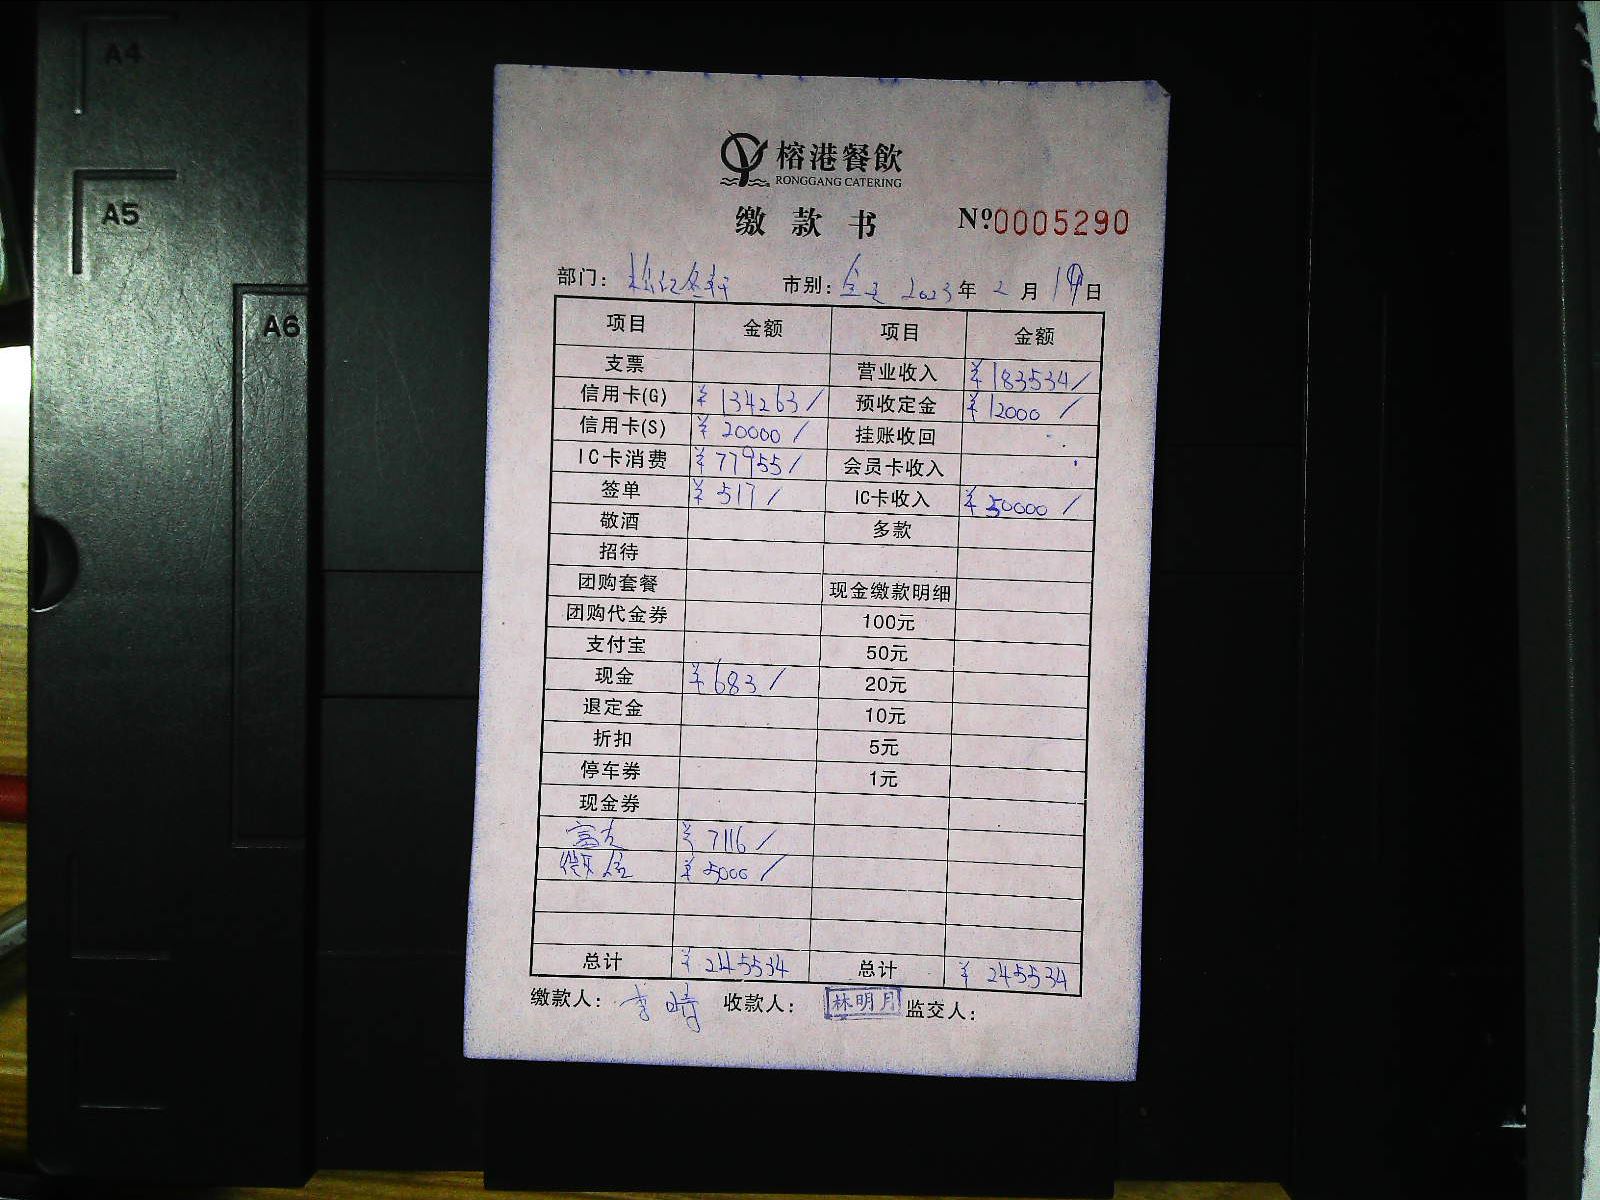 A4
A5
A6
榕港餐飲
RONGGANG CATERING
缴款书 Nº0005290
部门: 市别: 全天 2023年 2月 19日
项目 金额 项目 金额
支票 营业收入 ¥183534/
信用卡(G) ¥134263/ 预收定金 ¥12000/
信用卡(S) ¥20000/ 挂账收回
IC卡消费 ¥77955/ 会员卡收入
签单 ¥517/ IC卡收入 ¥50000/
敬酒 多款
招待
团购套餐 现金缴款明细
团购代金券 100元
支付宝 50元
现金 ¥683/ 20元
退定金 10元
折扣 5元
停车券 1元
现金券
¥7116/
微信 ¥5000/
总计 ¥245534 总计 ¥245534
缴款人: 李晴 收款人: 林明月 监交人: